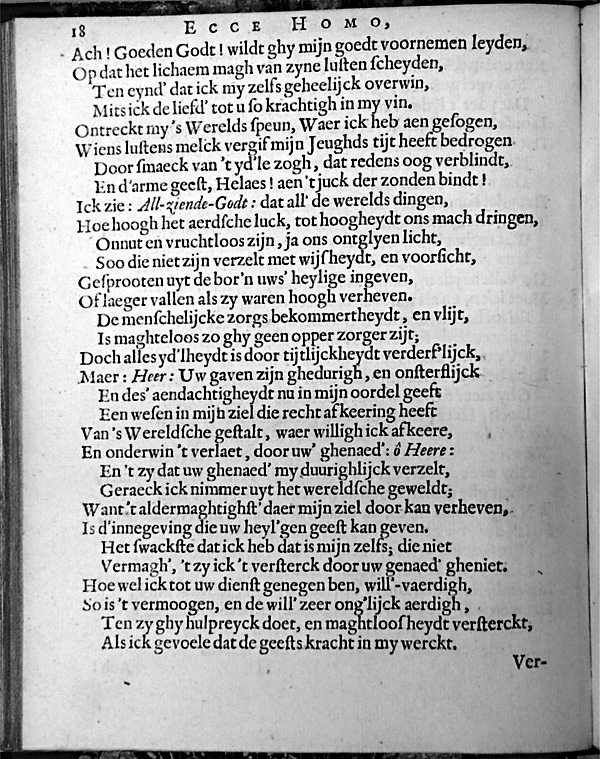 18 ECCE HOMO,
Ach! Goeden Godt! wildt ghy mijn goedt voornemen leyden,
Op dat het lichaem magh van zyne luſten ſcheyden,
Ten eynd' dat ick my zelfs geheelijck overwin,
Mits ick de liefd' tot u ſo krachtigh in my vin.
Ontreckt my 's Werelds ſpeun, Waer ick heb aen geſogen,
Wiens luſtens melck vergif mijn Jeughds tijt heeft bedrogen
Door ſmaeck van 't yd'le zogh, dat redens oog verblindt,
En d'arme geeſt, Helaes! aen 't juck der zonden bindt!
Ick zie: All-ziende-Godt: dat all' de werelds dingen,
Hoe hoogh het aerdſche luck, tot hoogheydt ons mach dringen,
Onnut en vruchtloos zijn, ja ons ontglyen licht,
Soo die niet zijn verzelt met wijſheydt, en voorſicht,
Geſprooten uyt de bor'n uws' heylige ingeven,
Of laeger vallen als zy waren hoogh verheven.
De menſchelijcke zorgs bekommertheydt, en vlijt,
Is maghteloos zo ghy geen opper zorger zijt;
Doch alles yd'lheydt is door tijtlijckheydt verderf'lijck,
Maer: Heer: Uw gaven zijn ghedurigh, en onſterflijck
En des' aendachtigheydt nu in mijn oordel geeft
Een weſen in mijn ziel die recht afkeering heeft
Van 's Wereldſche geſtalt, waer willigh ick afkeere,
En onderwin 't verlaet, door uw' ghenaed': ô Heere:
En 't zy dat uw ghenaed' my duurighlijck verzelt,
Geraeck ick nimmer uyt het wereldſche geweldt;
Want 't aldermaghtighſt' daer mijn ziel door kan verheven,
Is d'innegeving die uw heyl'gen geeſt kan geven.
Het ſwackſte dat ick heb dat is mijn zelfs; die niet
Vermagh', 't zy ick 't verſterck door uw genaed' gheniet.
Hoe wel ick tot uw dienſt genegen ben, will'-vaerdigh,
So is 't vermoogen, en de will' zeer ong'lijck aerdigh,
Ten zy ghy hulpreyck doet, en maghtlooſheydt verſterckt,
Als ick gevoele dat de geeſts kracht in my werckt.
Ver-